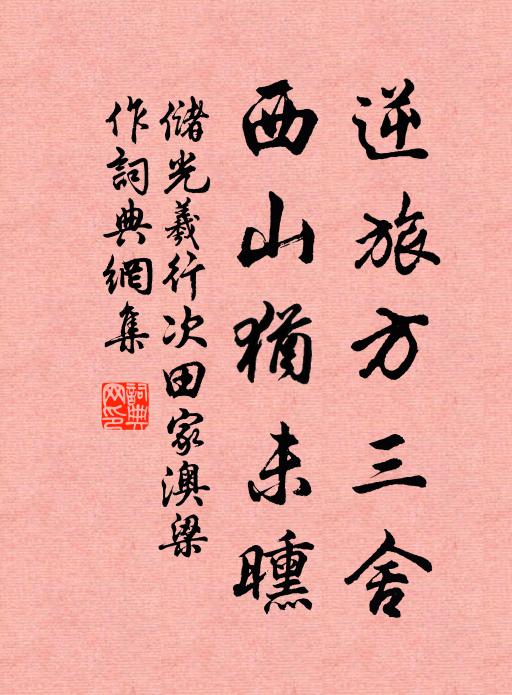 逆旅方三舍
西山猶未曛
儲光羲行次田家澳梁
作詞典網集
詞典網印